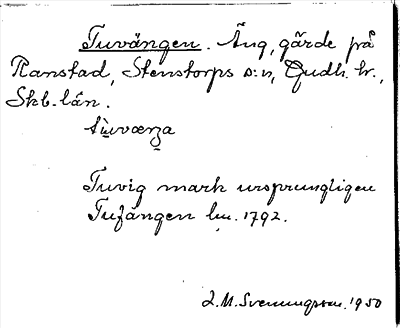 Tuvängen. Äng, gärde på
Ranstad, Stenstorps s:n, Gudh. hr.,
Skb. län.
tùværʒa
Tuvig mark ursprungligen
Tufängen lm. 1792.
L.M. Svenungsson. 1950